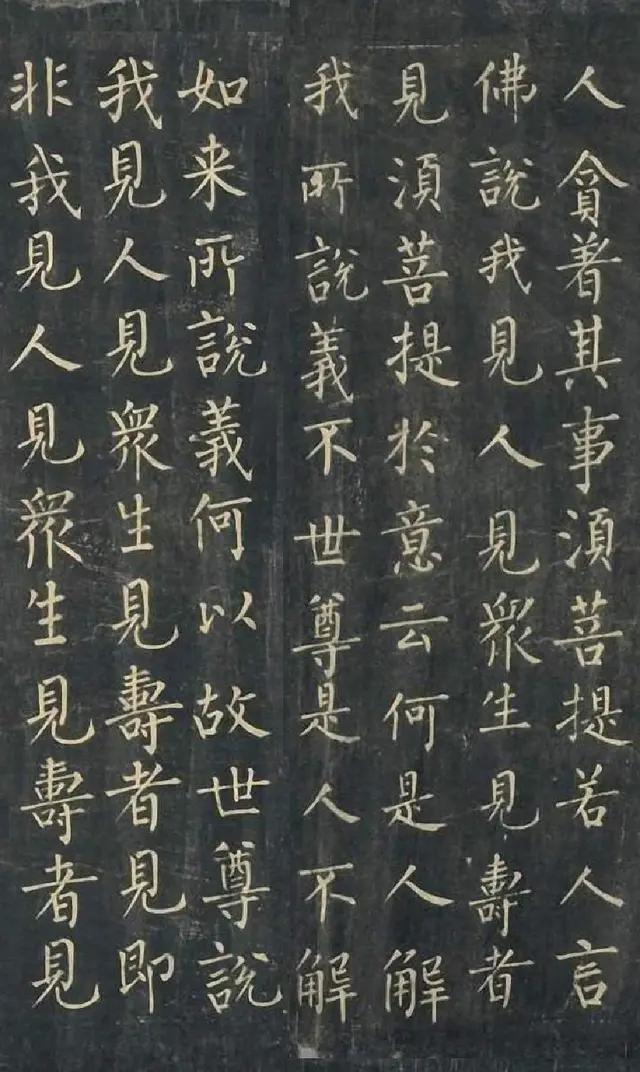 人貪着其事須菩提若人言
佛說我見人見衆生見壽者
見須菩提於意云何是人解
我所說義不世尊是人不解
如来所說義何以故世尊說
我見人見衆生見壽者見即
非我見人見衆生見壽者見